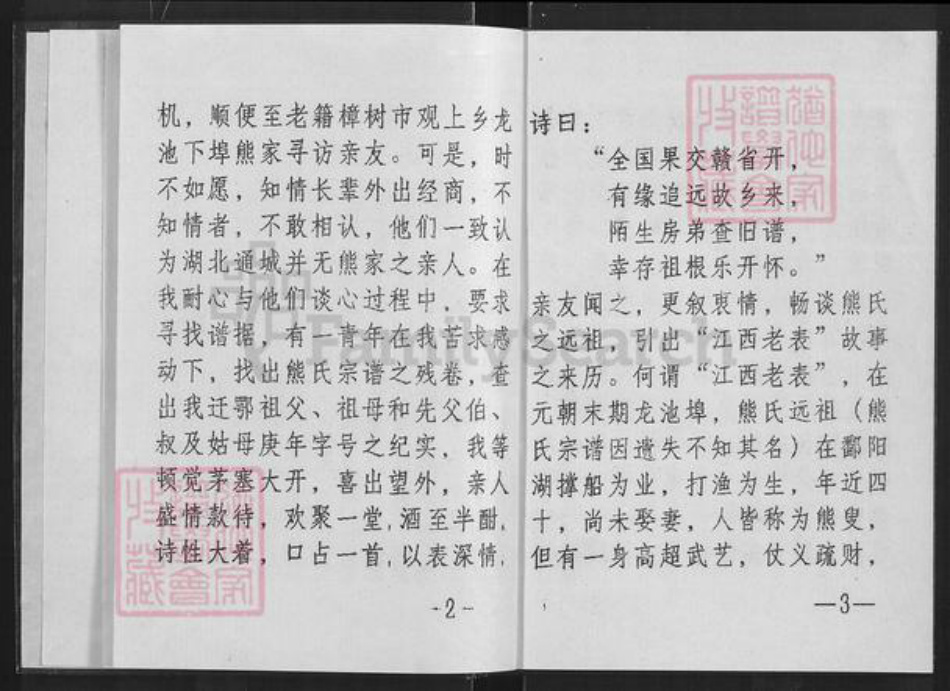 机，顺便至老籍樟树市观上乡龙
池下埠熊家寻访亲友。可是，时
不如愿，知情长辈外出经商，不
知情者，不敢相认，他们一致认
为湖北通城并无熊家之亲人。在
我耐心与他们谈心过程中，要求
寻找谱据，有一青年在我苦求感
动下，找出熊氏宗谱之残卷，查
出我迁鄂祖父、祖母和先父伯、
叔及姑母庚年字号之纪实，我等
顿觉茅塞大开，喜出望外，亲人
盛情款待，欢聚一堂，酒至半酣，
诗性大着，口占一首，以表深情，
-2-
诗曰：
“全国果交赣省开，
有缘追远故乡来，
陌生房弟查旧谱，
幸存祖根乐开怀。”
亲友闻之，更叙衷情，畅谈熊氏
之远祖，引出“江西老表”故事
之来历。何谓“江西老表”，在
元朝末期龙池埠，熊氏远祖（熊
氏宗谱因遗失不知其名）在鄱阳
湖撑船为业，打渔为生，年近四
十，尚未娶妻，人皆称为熊叟，
但有一身高超武艺，仗义疏财，
—3—
FamilySearch